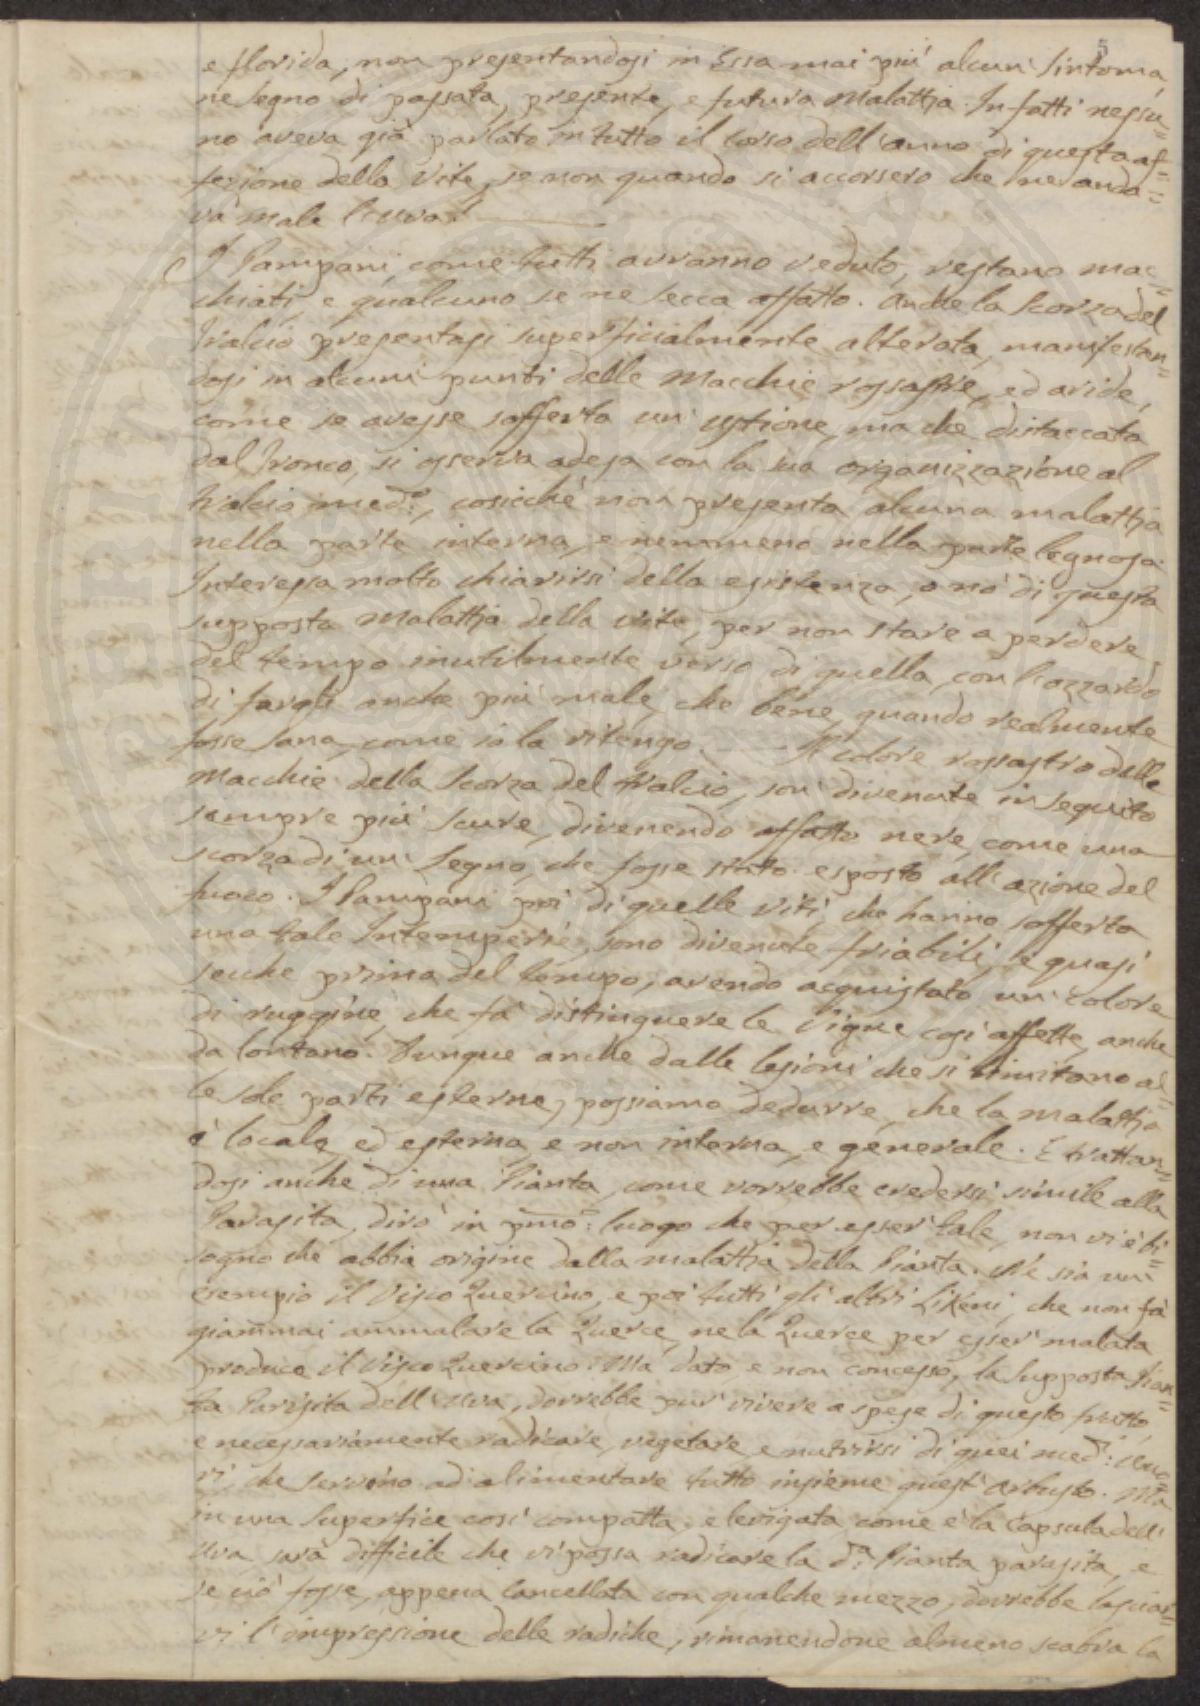 5
e florida, non presentandosi in Essa mai più alcun Sintoma,
ne Segno di passata, presente, e futura Malattia. In fatti nessu=
no aveva già parlato in tutto il Corso dell'anno di questa af=
fezione della Vite, se non quando si accorsero che ne anda=
va male l'uva.
I Pampani, come tutti avranno veduto, restano mac=
chiati, e qualcuno se ne secca affatto. Anche la Scorza del
tralcio presentasi superficialmente alterata, manifestan=
dosi in alcuni punti delle Macchie rossastre, ed aride,
come se avesse sofferta un'ustione, ma che distaccata
dal tronco, si osserva adesa con la sua organizzazione al
tralcio med:o, cosicché non presenta alcuna malattia
nella parte interna, e nemmeno nella parte legnosa.
Interessa molto chiarirsi della esistenza, o nò di questa
supposta Malattia della Vite, per non stare a perdere
del tempo inutilmente verso di quella, con l'azzardo
di fargli anche più male, che bene, quando realmente
fosse Sana, come io la ritengo. — Il colore rossastro delle
Macchie della Scorza del tralcio, son divenute in seguito
sempre più scure, divenendo affatto nere, come una
scorza di un Legno, che fosse stato esposto all'azione del
fuoco. I Pampani poi di quelle Viti, che hanno sofferta
una tale Intemperie, sono divenute friabili, e quasi
secche prima del tempo, avendo acquistato un colore
di ruggine, che fà distinguere le Vigne così affette, anche
da lontano. Dunque anche dalle lesioni che si limitano al=
le sole parti esterne, possiamo dedurre, che la malattia
è locale, ed esterna, e non interna, e generale. E trattan=
dosi anche di una Pianta, come vorrebbe credersi simile alla
Parasita, dirò in pmo: luogo che per esser tale, non vi è bi=
sogno che abbia origine dalla malattia della Pianta. Ne sia un'
esempio il Visco Quercino, e poi tutti gli altri Likeni, che non fà
giammai ammalare la Querce, ne la Querce per esser malata
produce il Visco Quercino. Ma dato, e non concesso, la Supposta Pian=
ta Parisita dell'Uva, dovrebbe pur vivere a spese di questo frutto,
e necessariamente radicare, vegetare, e nutrirsi di quei med:i
vi, che servono ad alimentare tutto insieme quest'arbusto. Ma
in una Superfice così compatta, e levigata come è la Capsula dell'
Uva sarà difficile che vi possa radicare la d:a Pianta parasita, e
se ciò fosse, appena Cancellata con qualche mezzo, dovrebbe lasciar=
vi l'impressione delle radiche, rimanendone almeno scabra la